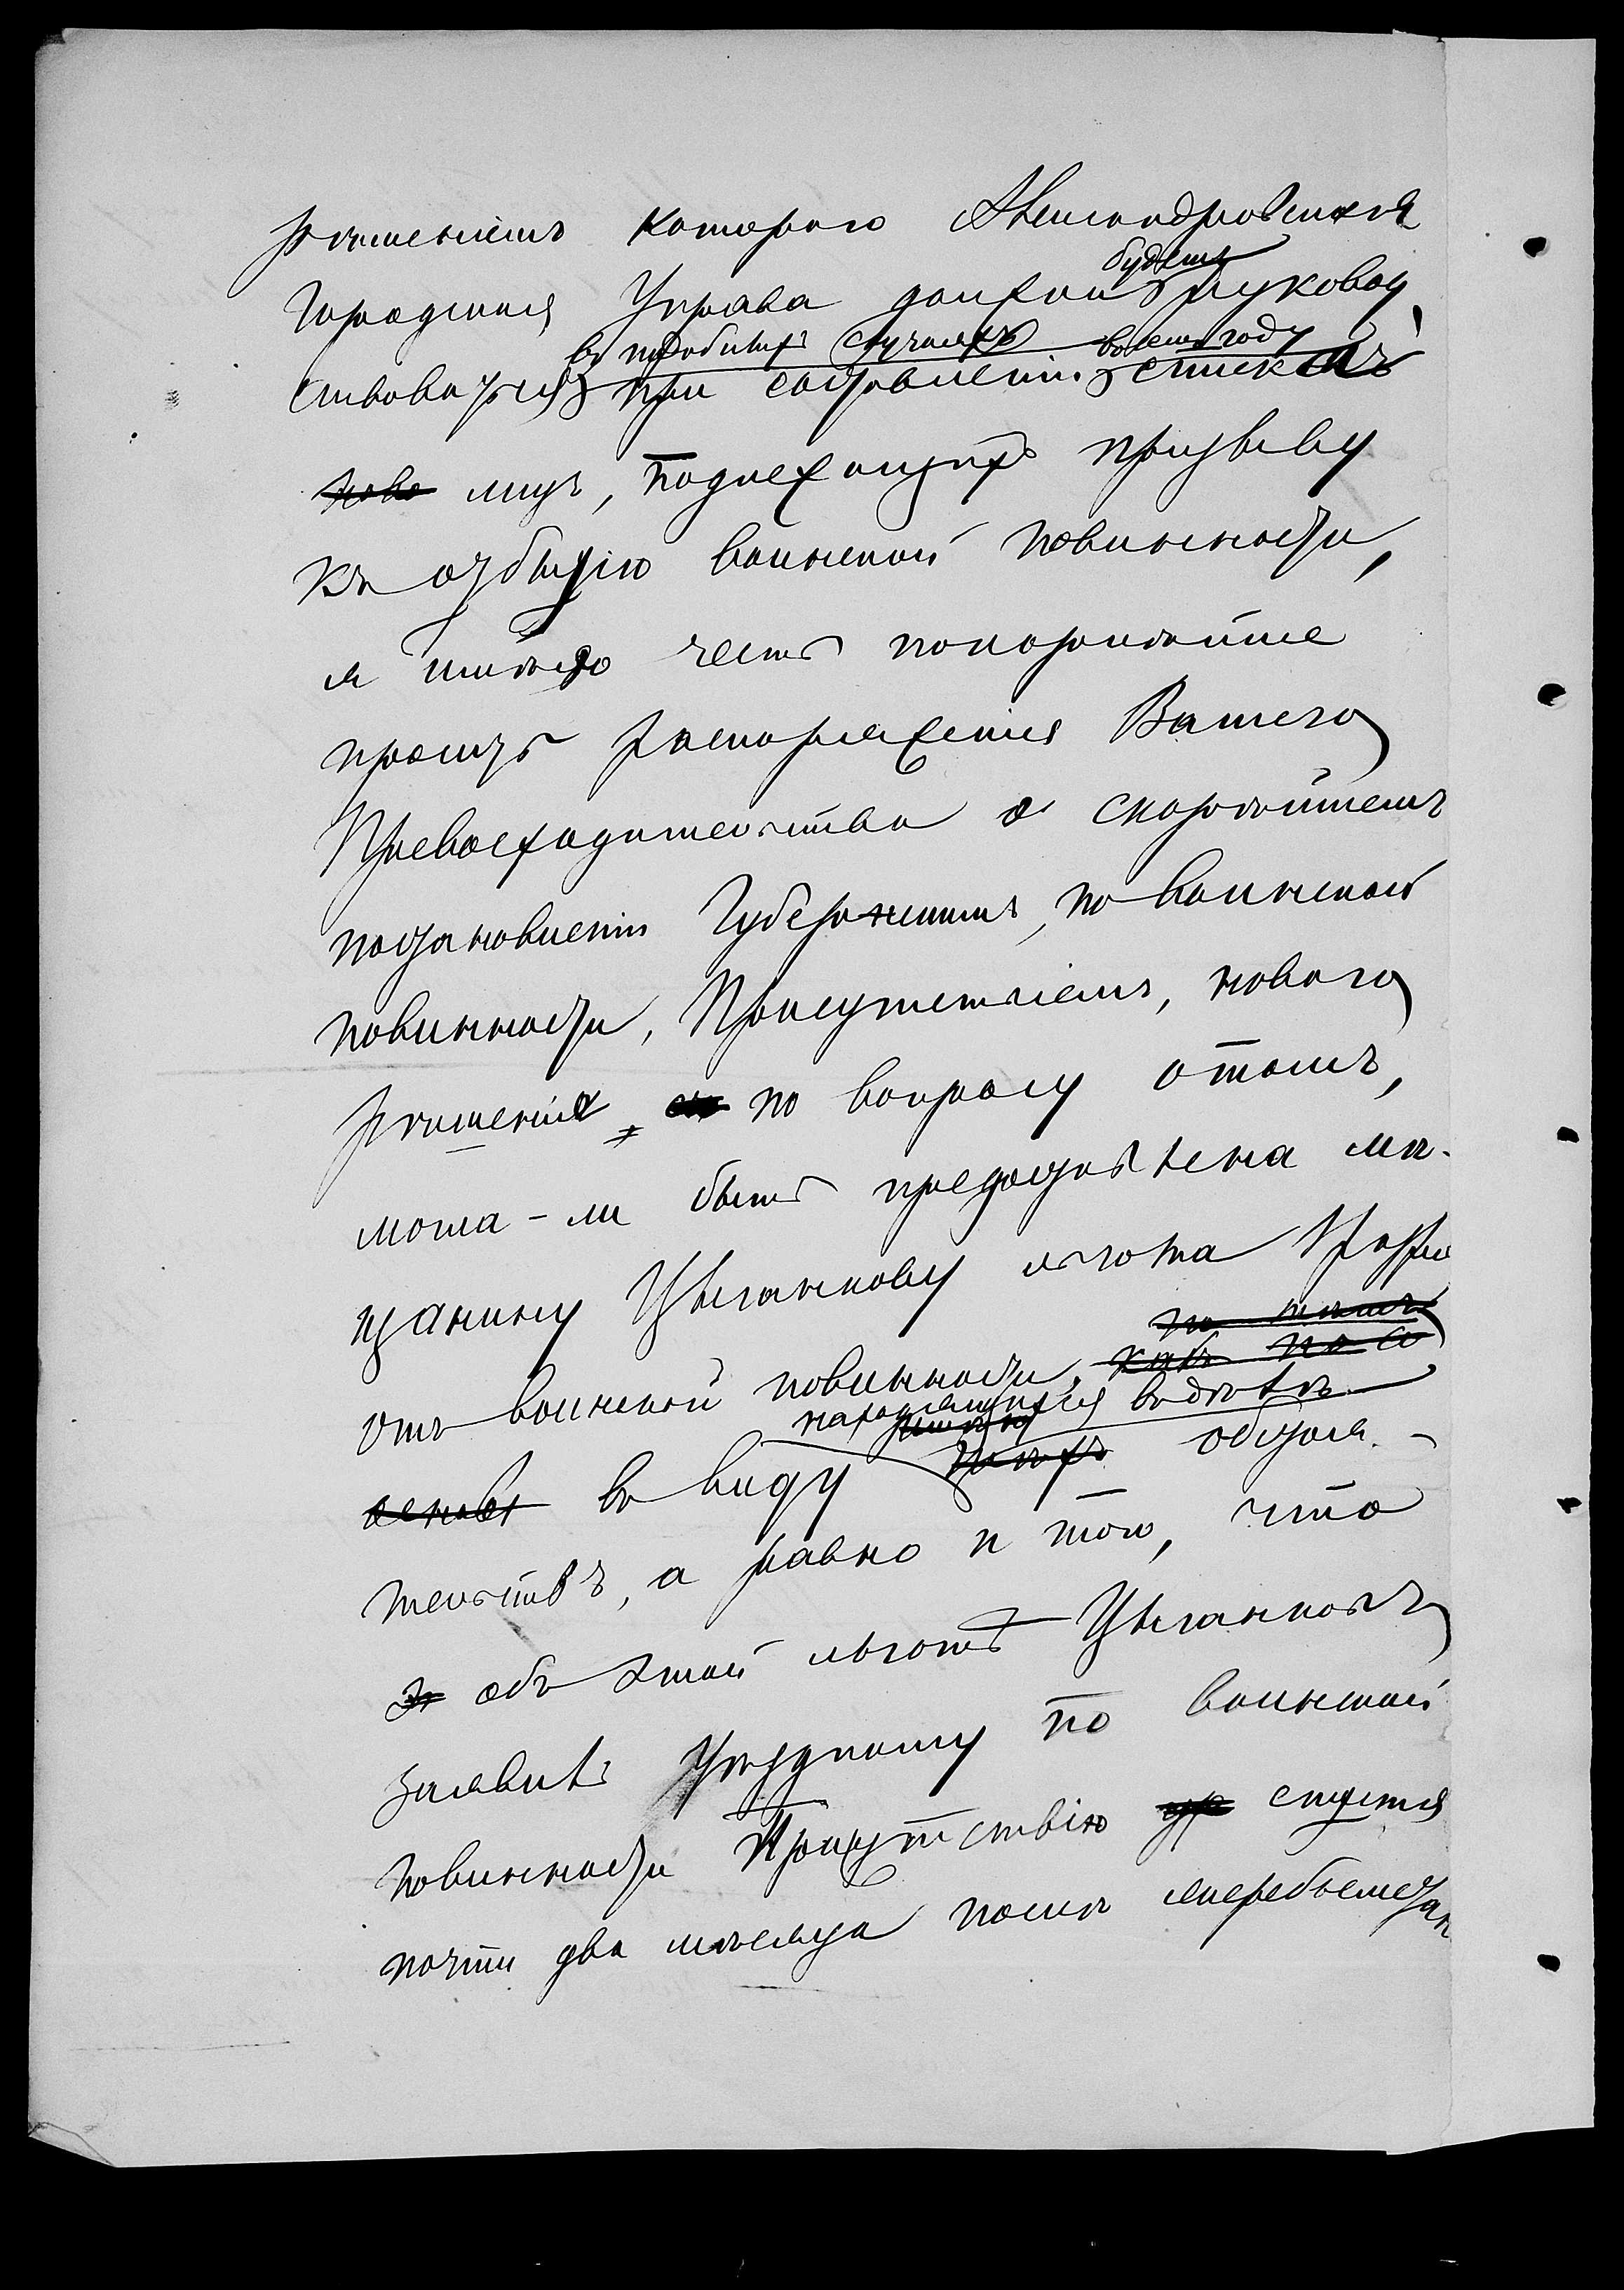 рѣшеніемъ котораго Александровская
будетъ
Городская Управа должна руковод
въ подобныхъ случаяхъ въ семъ году
ствоваться при составленіи списковъ
ново лицъ, подлежащихъ призыву
къ отбытію воинской повинности,
я имѣю честь покорнѣйше
просить распоряженія Вашего
Превосходительства о скорѣйшемъ
постановленіи Губернскимъ, по воинской
повинности, Присутствіемъ, новаго
рѣшенія по вопросу отомъ,
могла-ли быть предоставлена мѣ-
щанину Цыганкову льгота
отъ воинской повинности, какъ по
находящихся въ дѣлѣ
въ виду обстоя-
тельствъ, а равно и того, что
объ этой льготѣ Цыганковъ
заявилъ Уѣздному по воинской
повинности Присутствію спустя
почти два мѣсяца послѣ